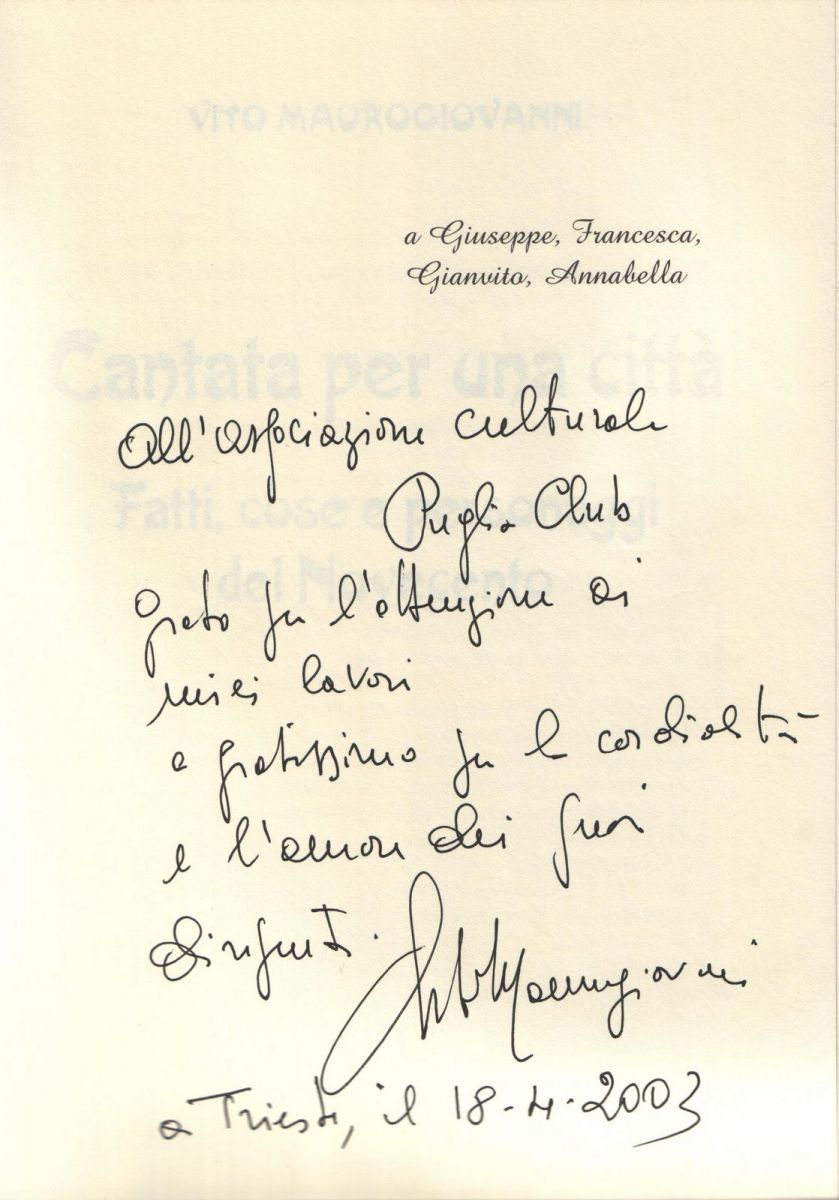 VITO MAUROGIOVANNI
a Giuseppe, Francesca,
Gianvito, Annabella
Cantata per una città
All'associazione culturale
Puglia Club
Fatti, cose e personaggi
del Novecento
grato per l'attenzione ai
miei lavori
e gratissimo per la cordialità
e l'amore dei suoi
dirigenti.
Vito Maurogiovanni
a Trieste, il 18-4-2003